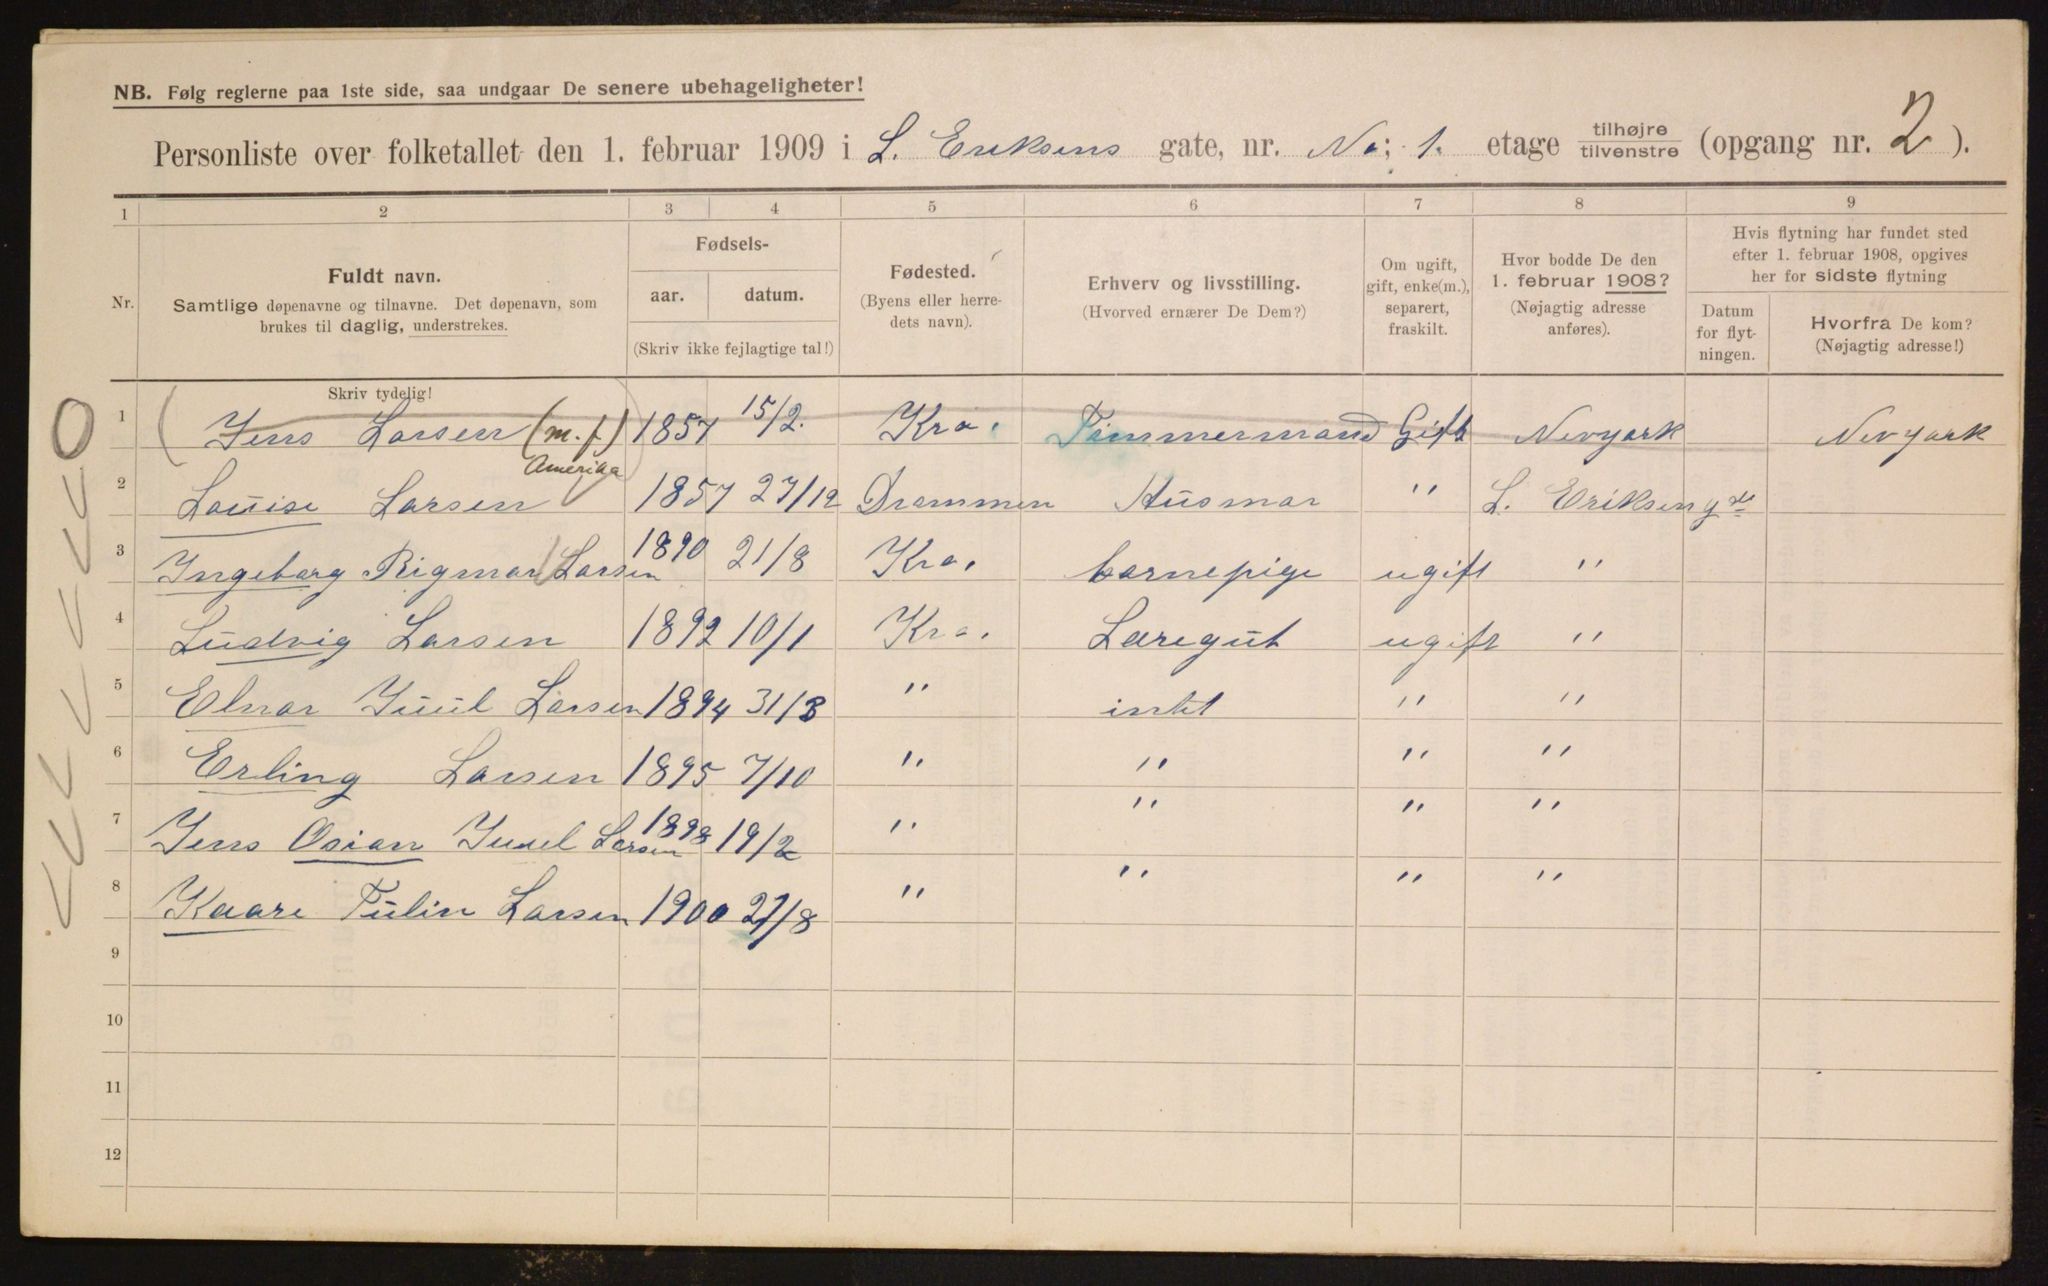 NB. Følg reglerne paa 1ste side, saa undgaar De senere ubehageligheter!
Personliste over folketallet den 1. februar 1909 i L. Eriksens gate, nr. No; 1. etage tilhøjre/tilvenstre (opgang nr. 2).
1 2 3 4 5 6 7 8 9
Nr.
Fuldt navn.
Samtlige døpenavne og tilnavne. Det døpenavn, som
brukes til daglig, understrekes.
Skriv tydelig!
Fødsels-
aar. datum.
(Skriv ikke fejlagtige tal!)
Fødested.
(Byens eller herre-
dets navn).
Erhverv og livsstilling.
(Hvorved ernærer De Dem?)
Om ugift,
gift, enke(m.),
separert,
fraskilt.
Hvor bodde De den
1. februar 1908?
(Nøjagtig adresse
anføres).
Hvis flytning har fundet sted
efter 1. februar 1908, opgives
her for sidste flytning
Datum
for flyt-
ningen.
Hvorfra De kom?
(Nøjagtig adresse!)
1 (Jens Larsen (m.f) 1857 15/2. Kra. Tømmermand Gift Nevyork Nevyork
Amerika
2 Louise Larsen 1857 27/12 Drammen Husmor " L. Eriksen gde
3 Ingeborg Rigmor Larsen 1890 21/8 Kra. barnepige ugift "
4 Ludvig Larsen 1892 10/1 Kra. Læregut ugift "
5 Elnar Juul Larsen 1894 31/3 " intet " "
6 Erling Larsen 1895 7/10 " " " "
7 Jens Osian Juuel Larsen 1898 19/2 " " " "
8 Kaare Tulin Larsen 1900 27/8 " " " "
9
10
11
12